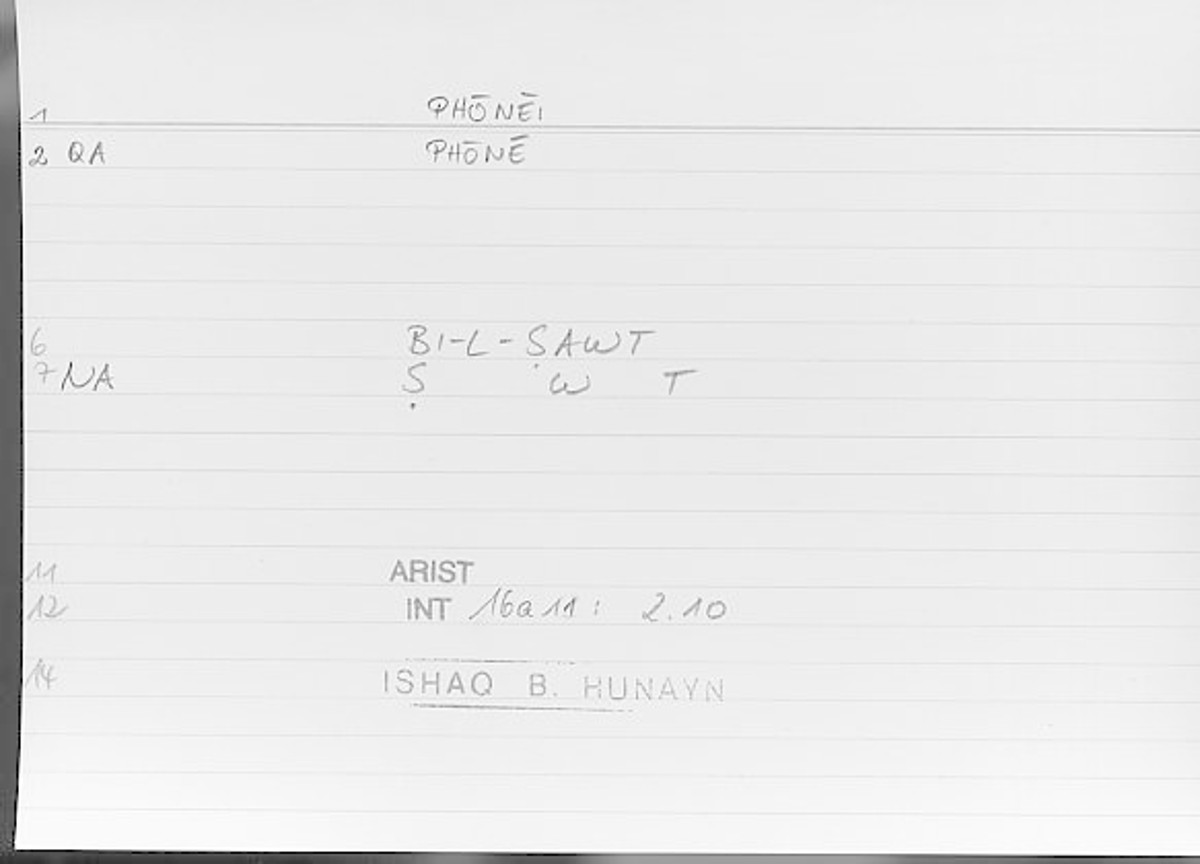 1 PHŌNĒI
2 QA PHŌNĒ
6 BI-L-ṢAWT
7 NA Ṣ W T
11 ARIST
12 INT 16a11: 2.10
14 ISHAQ B. HUNAYN